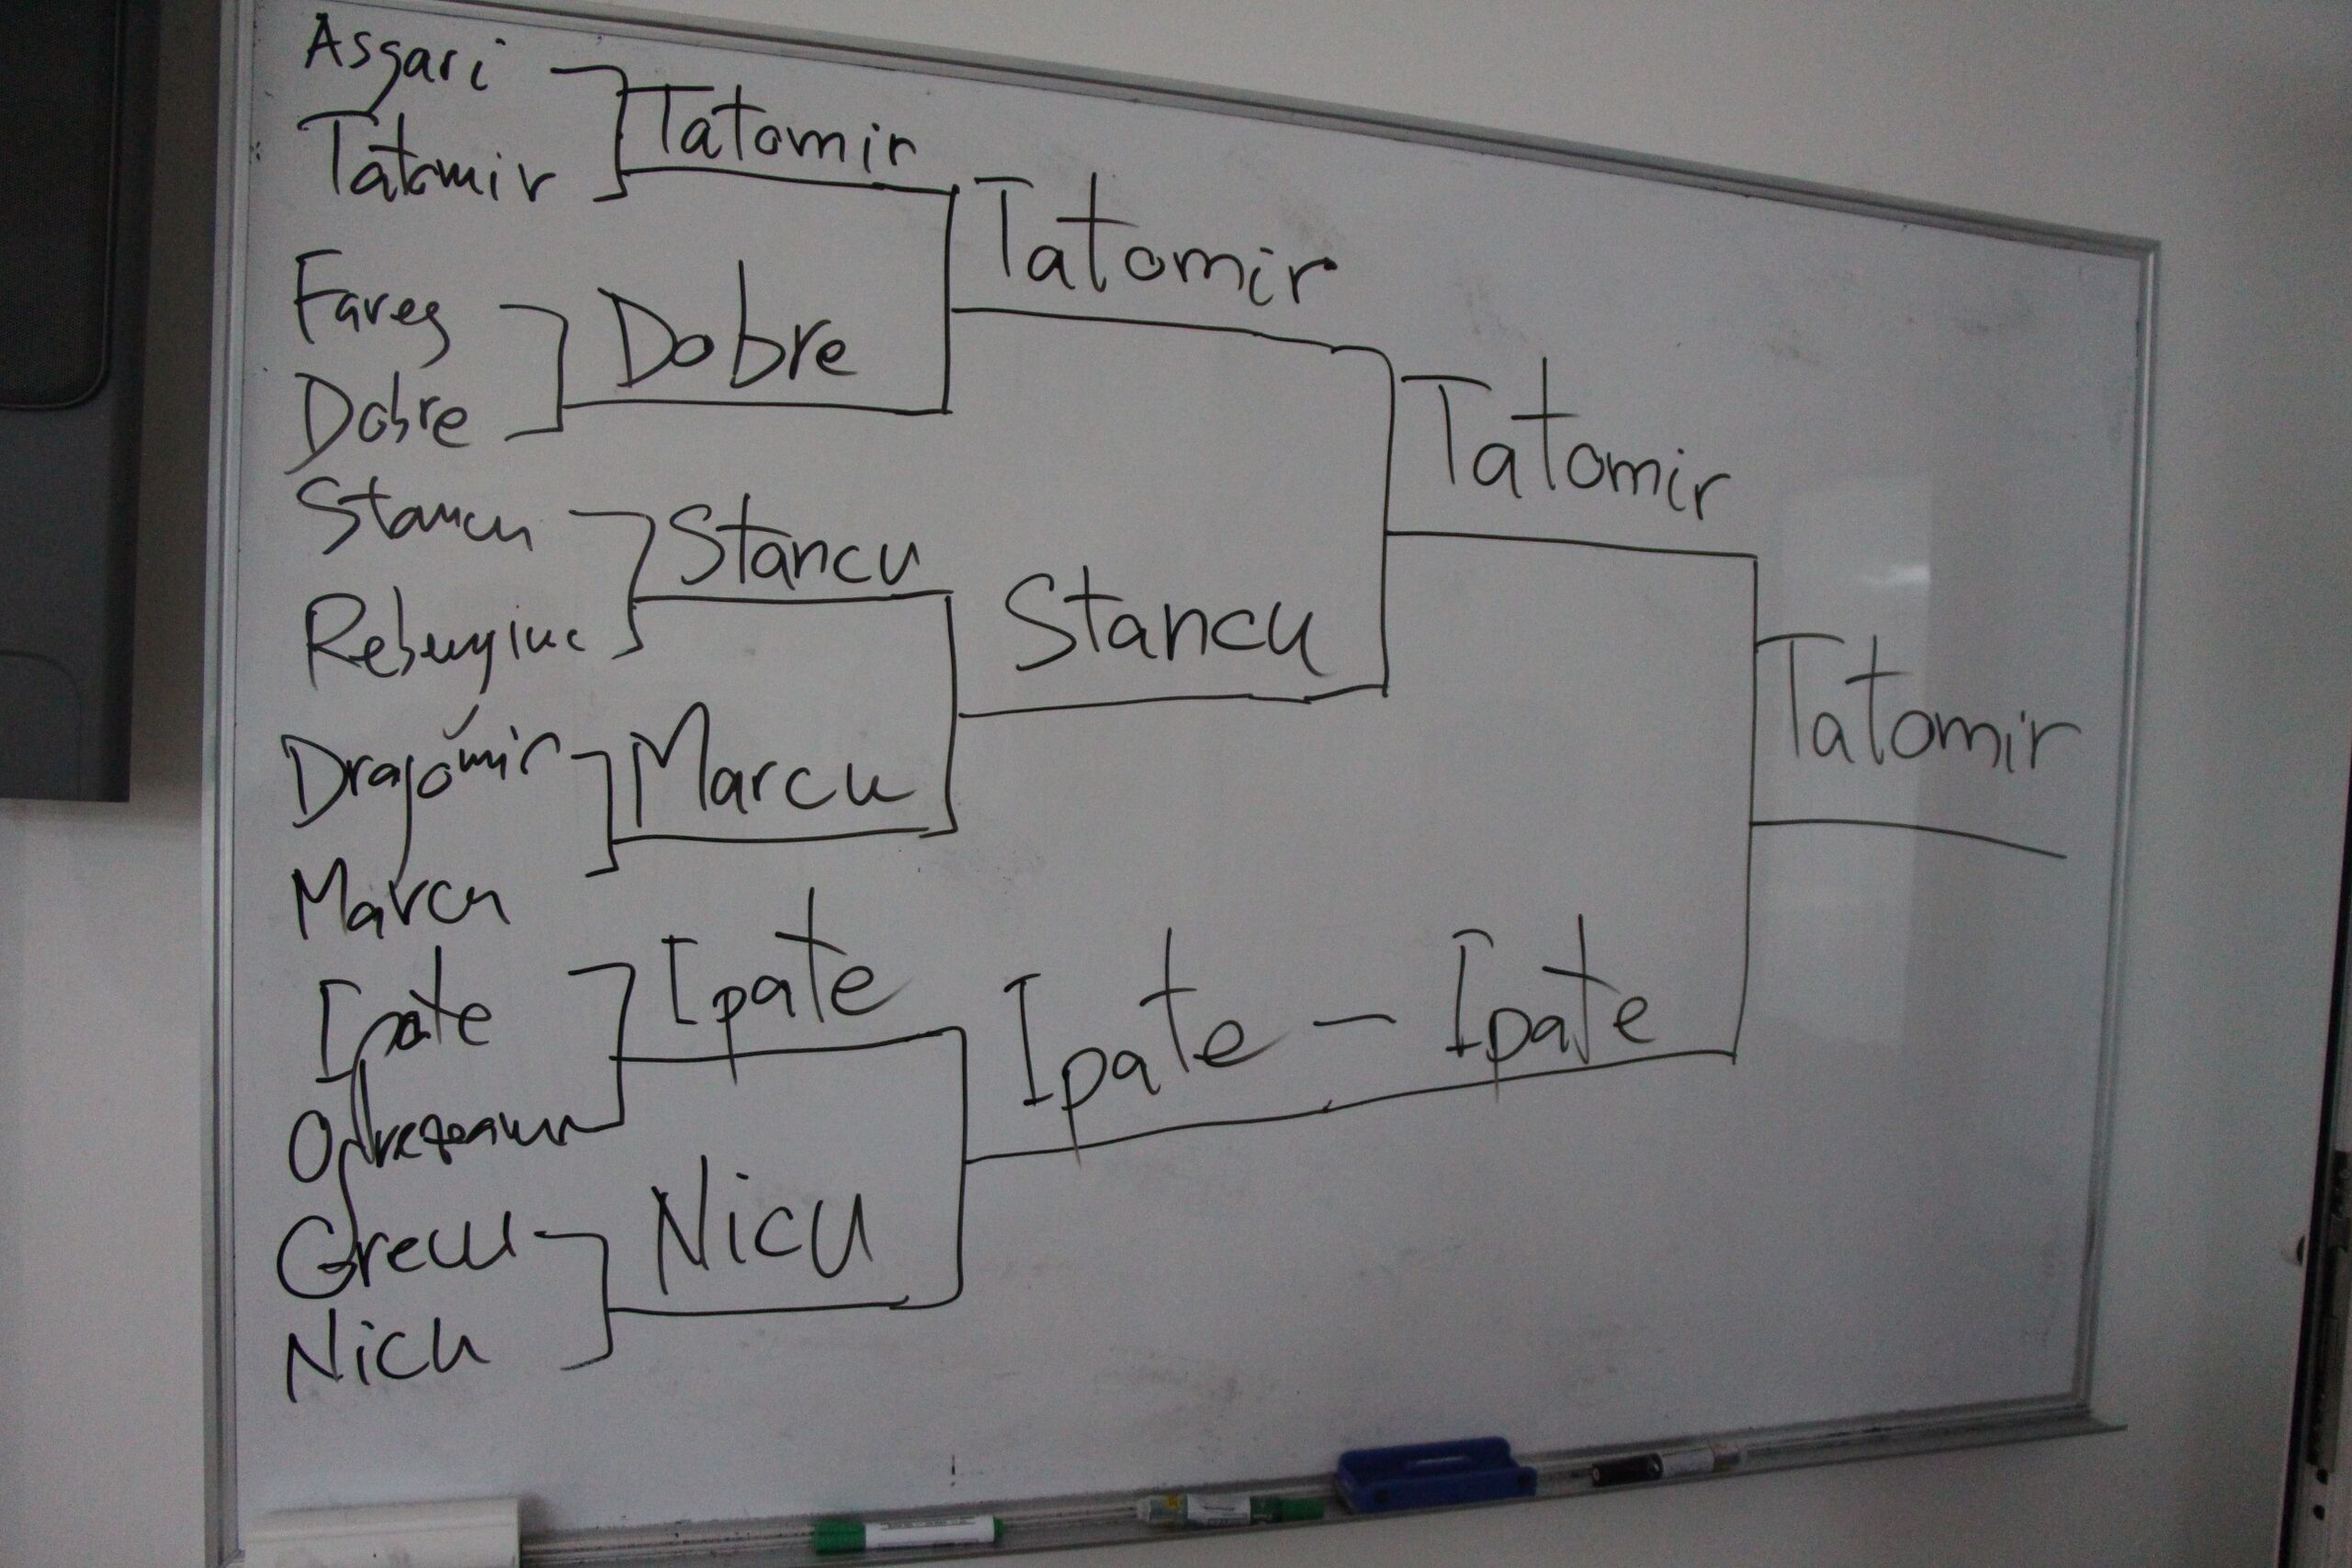 Asgari
Tatomir
Fares
Dobre
Stancu
Dragomir
Marcu
Ipate
Grecu
Nicu
Tatomir
Dobre
Stancu
Marcu
Ipate
Nicu
Tatomir
Stancu
Ipate – Ipate
Tatomir
Tatomir